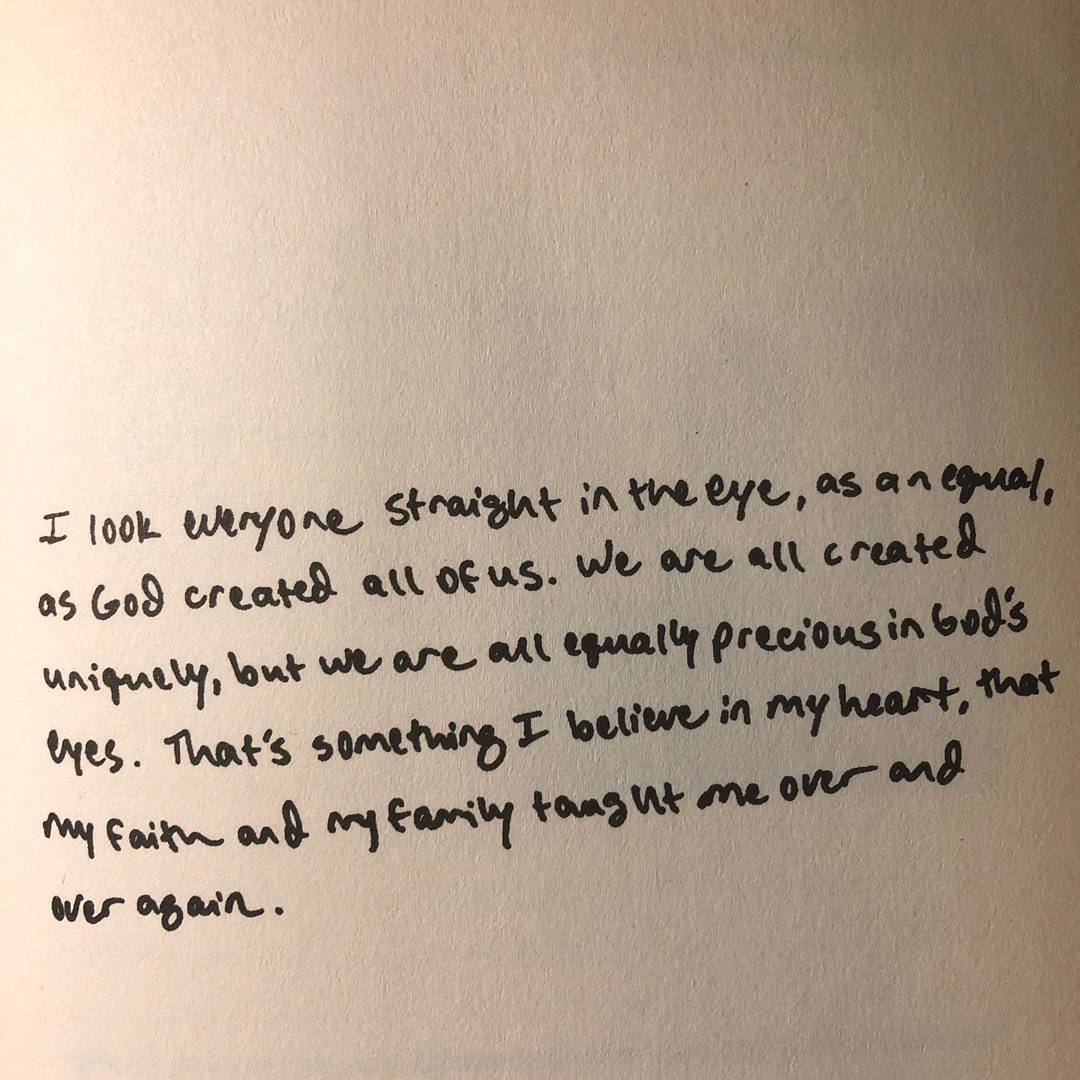 I look everyone straight in the eye, as an equal,
as God created all of us. We are all created
uniquely, but we are all equally precious in God's
eyes. That's something I believe in my heart, that
my faith and my family taught me over and
over again.